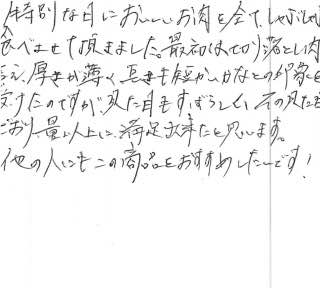 特別な日においしいお肉を全て、しゃぶしゃぶ
食べさせて頂きました。最初は切り落とし肉
厚さが薄く、長さも短かいかなとの印象を
受けたのですが、見た目もすばらしく、その見た
どおり量以上に、満足出来たと思います。
他の人にもこの商品をおすすめしたいです！